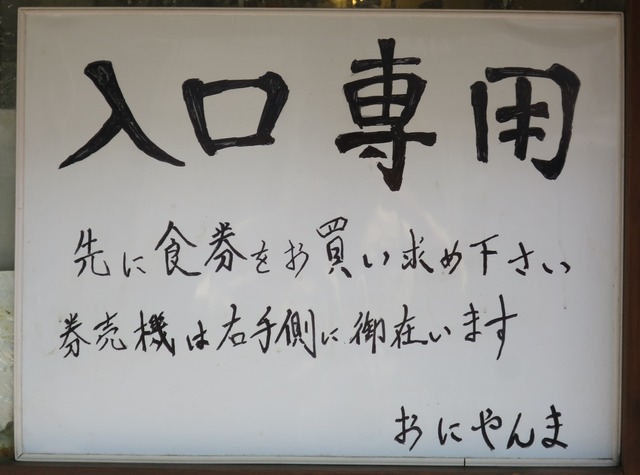 入口専用
先に食券をお買い求め下さい
券売機は右手側に御在います
おにやんま